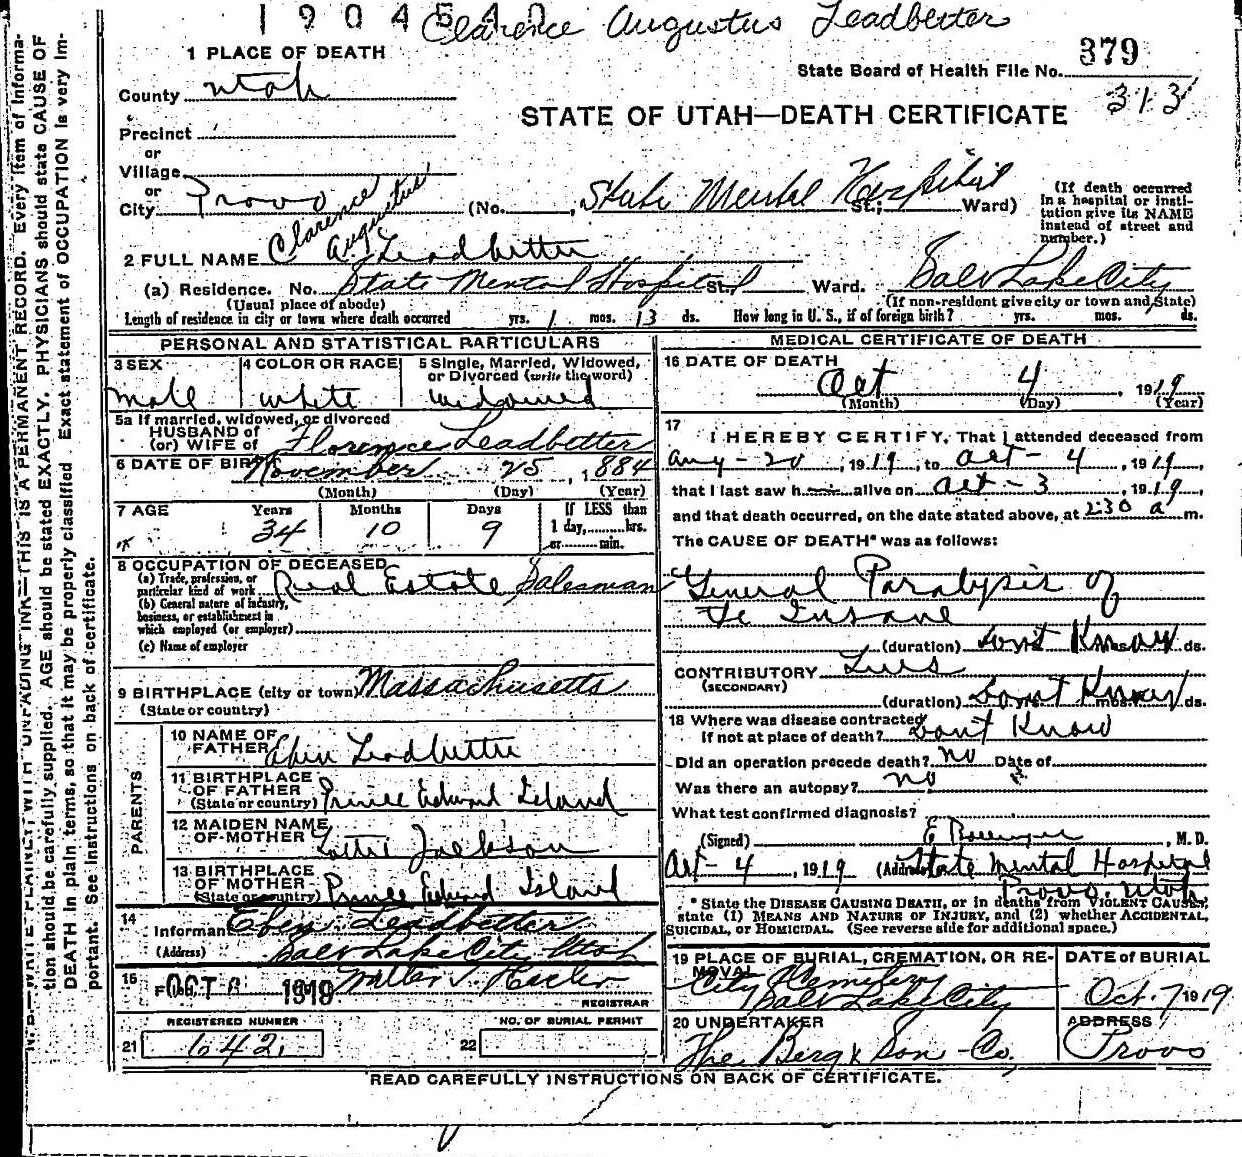 1904540
Clarence Augustus Leadbetter
1 PLACE OF DEATH
State Board of Health File No. 379
County Utah
313
STATE OF UTAH—DEATH CERTIFICATE
Precinct
or
Village
or
City Provo (No. , State Mental Hospital St.; Ward)
(If death occurred in a hospital or institution give its NAME instead of street and number.)
2 FULL NAME Clarence Augustus Leadbetter
(a) Residence. No. State Mental Hospital St., Ward. Salt Lake City
(Usual place of abode) (If non-resident give city or town and State)
Length of residence in city or town where death occurred yrs. 1 mos. 13 ds. How long in U. S., if of foreign birth? yrs. mos. ds.
PERSONAL AND STATISTICAL PARTICULARS
3 SEX 4 COLOR OR RACE 5 Single, Married, Widowed, or Divorced (write the word)
Male white Widowed
5a If married, widowed, or divorced
HUSBAND of
(or) WIFE of Florence Leadbetter
6 DATE OF BIRTH November 25, 1884
(Month) (Day) (Year)
7 AGE Years Months Days If LESS than
34 10 9 1 day, hrs.
or min.
8 OCCUPATION OF DECEASED
(a) Trade, profession, or particular kind of work Real Estate Salesman
(b) General nature of industry, business, or establishment in which employed (or employer)
(c) Name of employer
9 BIRTHPLACE (city or town) Massachusetts
(State or country)
PARENTS
10 NAME OF FATHER Eben Leadbetter
11 BIRTHPLACE OF FATHER (State or country) Prince Edward Island
12 MAIDEN NAME OF MOTHER Lottie Jackson
13 BIRTHPLACE OF MOTHER (State or country) Prince Edward Island
14 Informant Eben Leadbetter
(Address) Salt Lake City Utah
15 OCT 1919
REGISTRAR
REGISTERED NUMBER NO. OF BURIAL PERMIT
21 642 22
MEDICAL CERTIFICATE OF DEATH
16 DATE OF DEATH
Oct 4 1919
(Month) (Day) (Year)
17
I HEREBY CERTIFY, That I attended deceased from
Aug - 20, 1919, to Oct - 4, 1919,
that I last saw him alive on Oct - 3, 1919,
and that death occurred, on the date stated above, at 2:30 a m.
The CAUSE OF DEATH* was as follows:
General Paralysis of
the Insane
(duration) Dont Know ds.
CONTRIBUTORY Lues
(SECONDARY)
(duration) Dont Know yrs. mos. ds.
18 Where was disease contracted
if not at place of death? Dont Know
Did an operation precede death? no Date of
Was there an autopsy? no
What test confirmed diagnosis?
(Signed) E , M. D.
Oct - 4, 1919 (Address) State Mental Hospital
Provo, Utah
* State the DISEASE CAUSING DEATH, or in deaths from VIOLENT CAUSES, state (1) MEANS AND NATURE OF INJURY, and (2) whether ACCIDENTAL, SUICIDAL, or HOMICIDAL. (See reverse side for additional space.)
19 PLACE OF BURIAL, CREMATION, OR REMOVAL DATE of BURIAL
City Cemetery
Salt Lake City Oct. 7 1919
20 UNDERTAKER ADDRESS
The Berg & Son Co. Provo
READ CAREFULLY INSTRUCTIONS ON BACK OF CERTIFICATE.
N. B.—WRITE PLAINLY, WITH UNFADING INK—THIS IS A PERMANENT RECORD. Every item of information should be carefully supplied. AGE should be stated EXACTLY. PHYSICIANS should state CAUSE OF DEATH in plain terms, so that it may be properly classified. Exact statement of OCCUPATION is very important. See instructions on back of certificate.